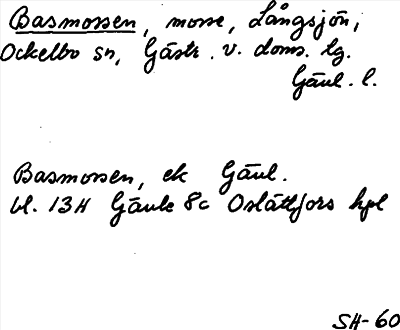 Basmossen, mosse, Långsjön,
Ockelbo sn, Gästr. v. doms. tg.
Gävl. l.
Basmossen, ek Gävl.
bl. 13H Gävle 8c Oslättfors hpl
SH-60